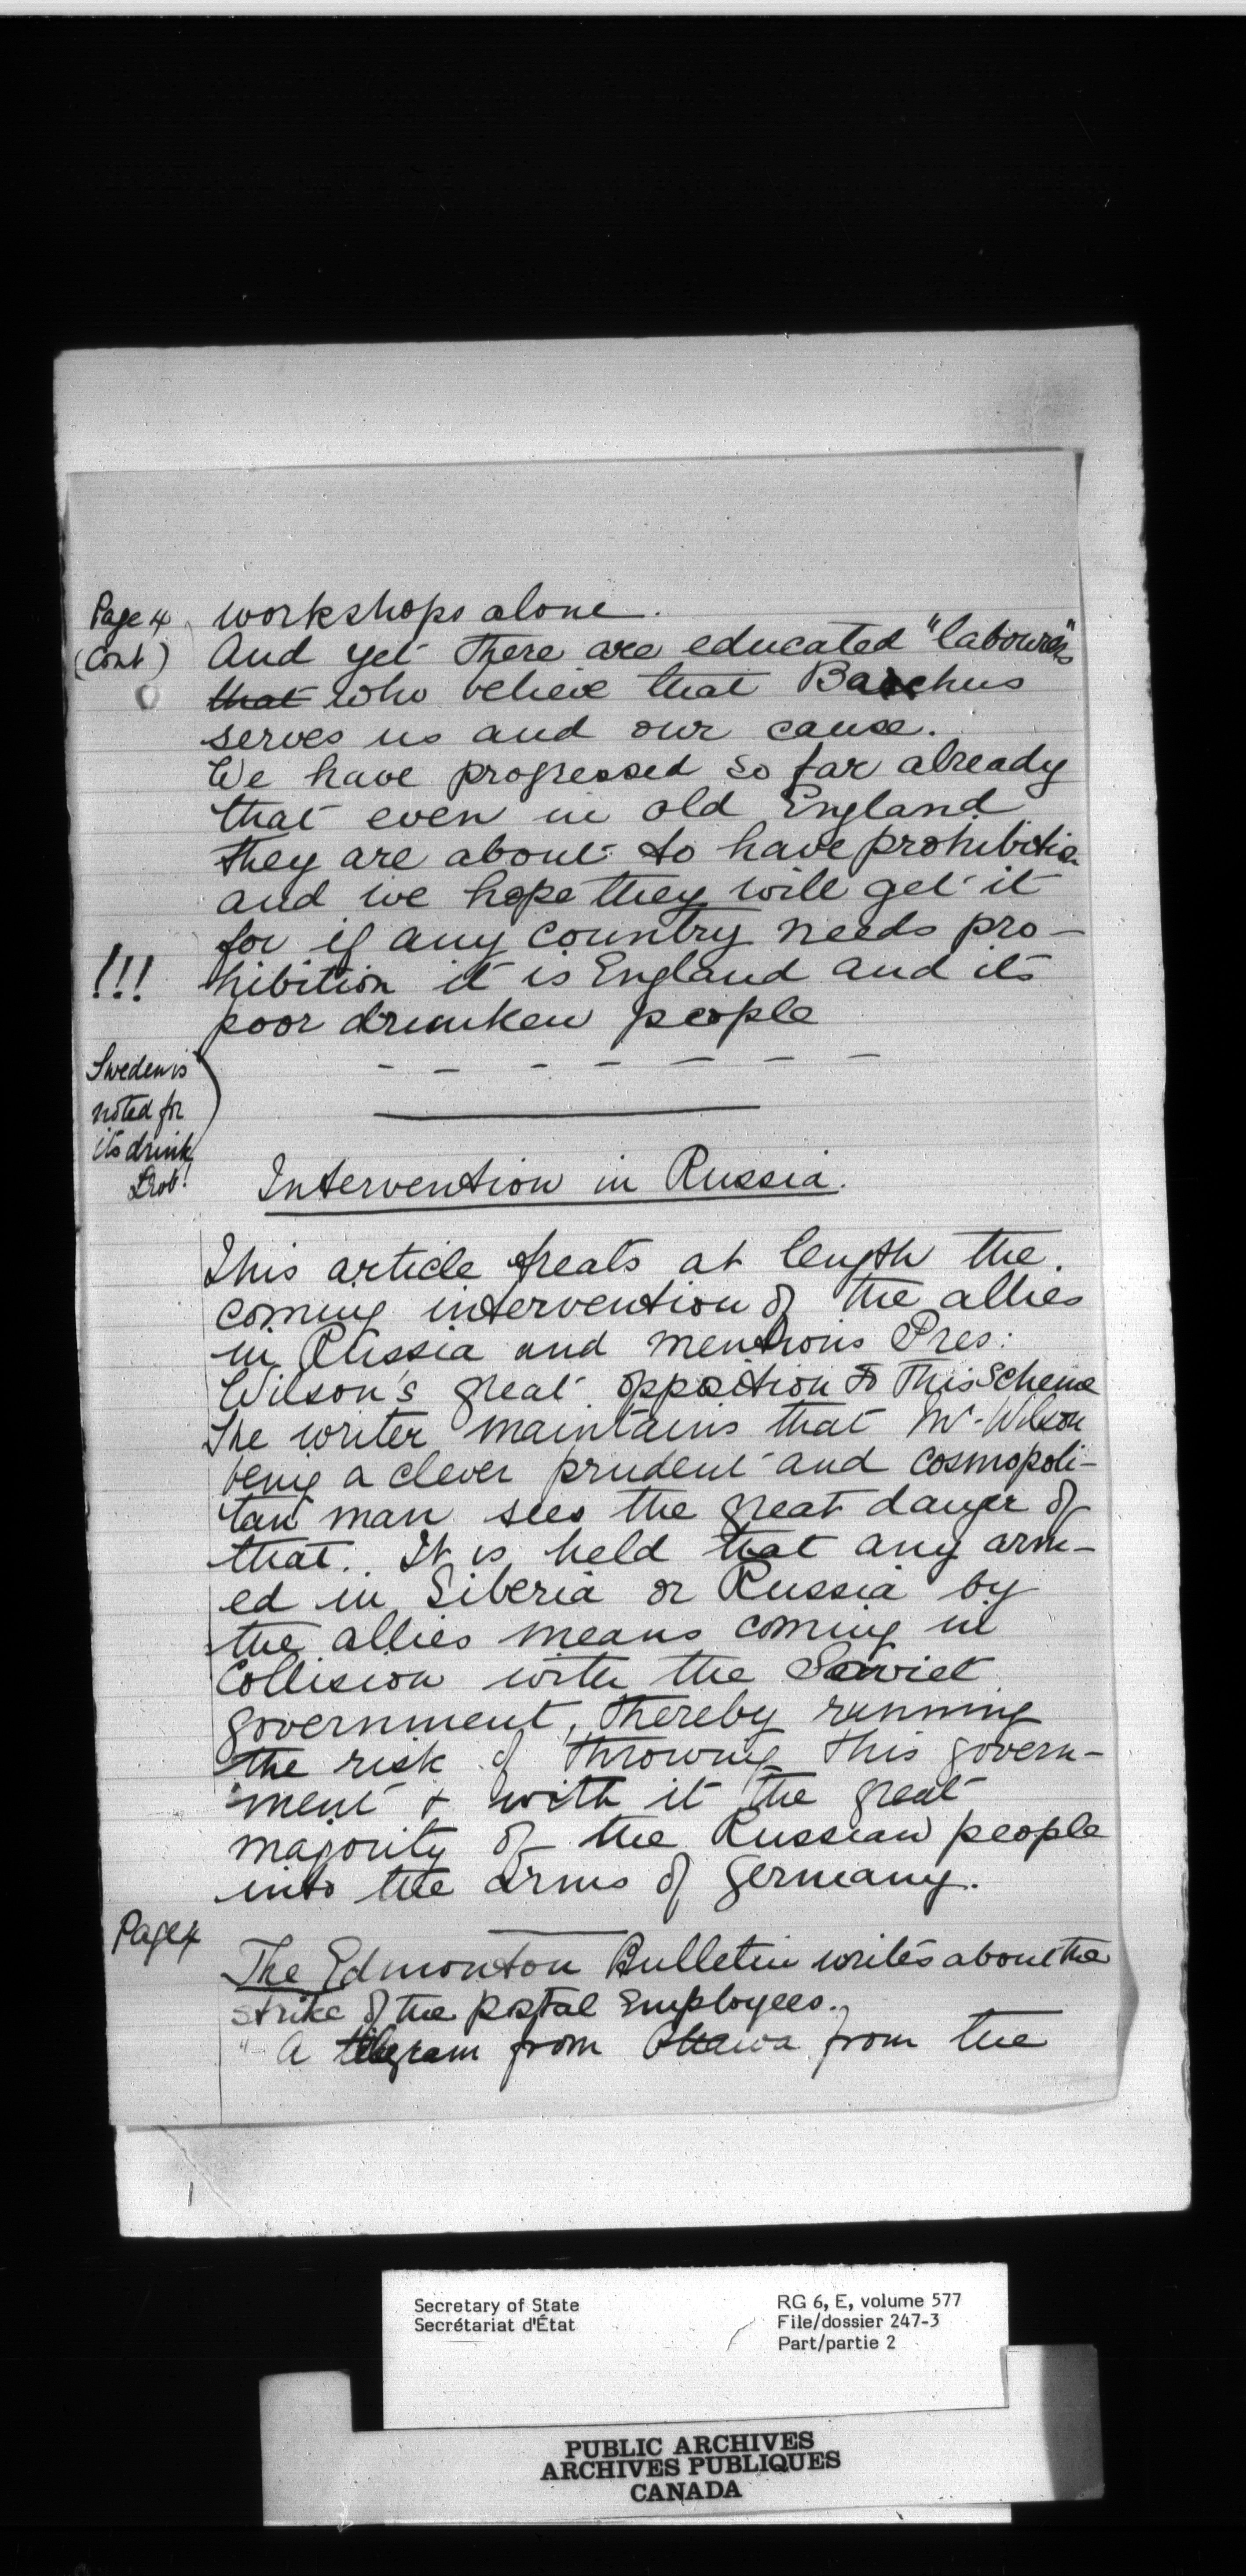 Page 4 workshops alone.
(Cont) And yet there are educated "labourers"
that who believe that Bacchus
serves us and our cause.
We have progressed so far already
that even in old England
they are about to have prohibition
and we hope they will get it
for if any country needs pro-
!!! hibition it is England and its
poor drunken people
- - - - - - -
Sweden is
noted for
its drink
Prob!
Intervention in Russia.
This article treats at length the
coming intervention of the allies
in Russia and mentions Pres:
Wilson's great opposition to this scheme
The writer maintains that Mr. Wilson
being a clever prudent and cosmopoli-
tan man sees the great danger of
that. It is held that any arm-
ed in Siberia or Russia by
the allies means coming in
Collision with the Soviet
government, thereby running
the risk of throwing this govern-
ment & with it the great
majority of the Russian people
into the arms of Germany.
Page 4
The Edmonton Bulletin writes about the
strike of the postal Employees.
"- A telegram from Ottawa from the
Secretary of State
Secrétariat d'État
RG 6, E, volume 577
File/dossier 247-3
Part/partie 2
PUBLIC ARCHIVES
ARCHIVES PUBLIQUES
CANADA